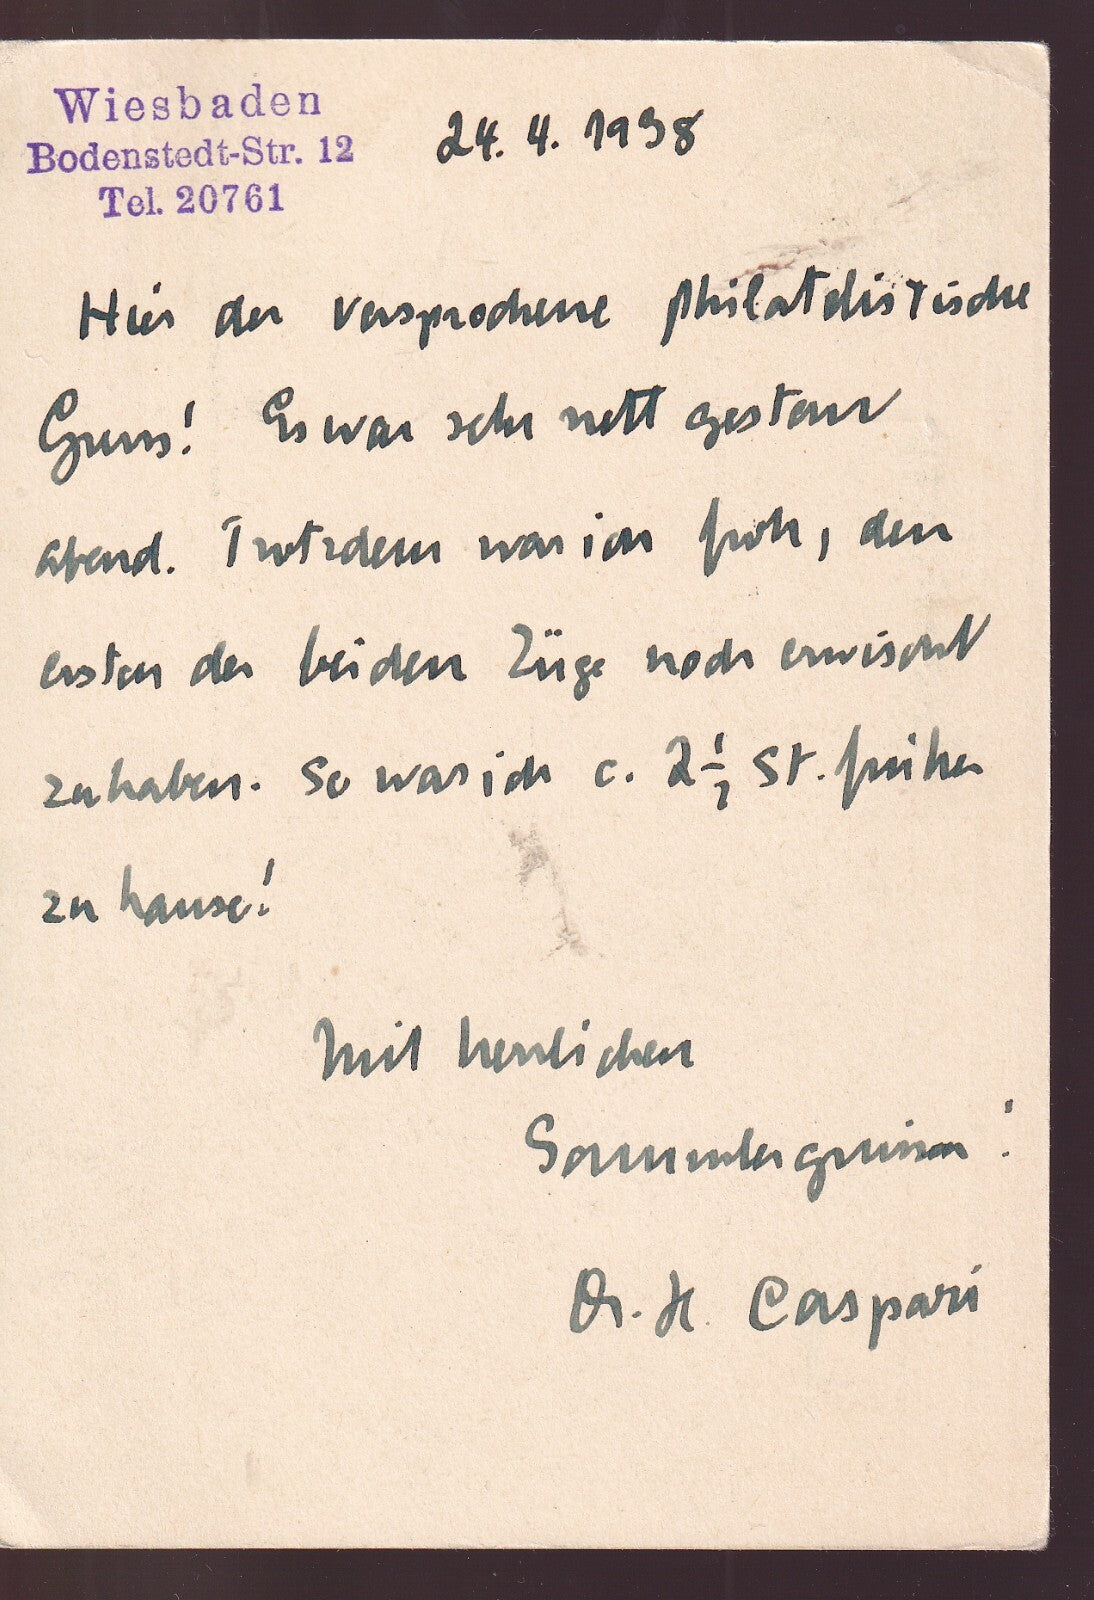 Wiesbaden
Bodenstedt-Str. 12
Tel. 20761
24. 4. 1938
Hier der versprochene philatelistische
Gruss! Es war sehr nett gestern
abend. Trotzdem war ich froh, den
ersten der beiden Züge noch erwischt
zu haben. So war ich c. 2 1/2 St. früher
zu hause!
Mit herzlichen
Sammlergrüssen!
Dr. H. Caspari